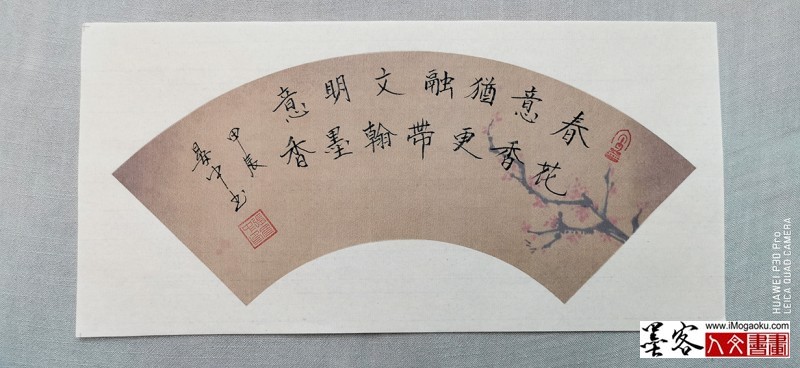 春花
意香
猶更
融帶
文翰
明墨
意香
甲辰
中书
HUAWEI P30 Pro
LEICA QUAD CAMERA
墨客
www.iMogaoku.com
人文書畫